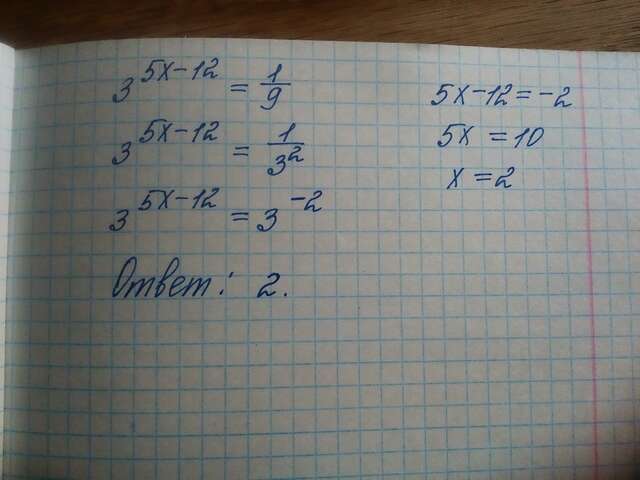 3^{5x-12} = \frac{1}{9}
3^{5x-12} = \frac{1}{3^2}
3^{5x-12} = 3^{-2}
5x-12=-2
5x=10
x=2
Ответ: 2.